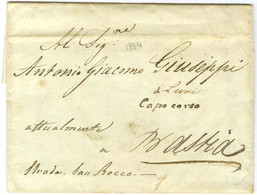 Al Sig.ne
1834
Antonio Giacomo Giuseppi
di Luri
Capo corso
attualmente
a Bastia
Strada San Rocco.